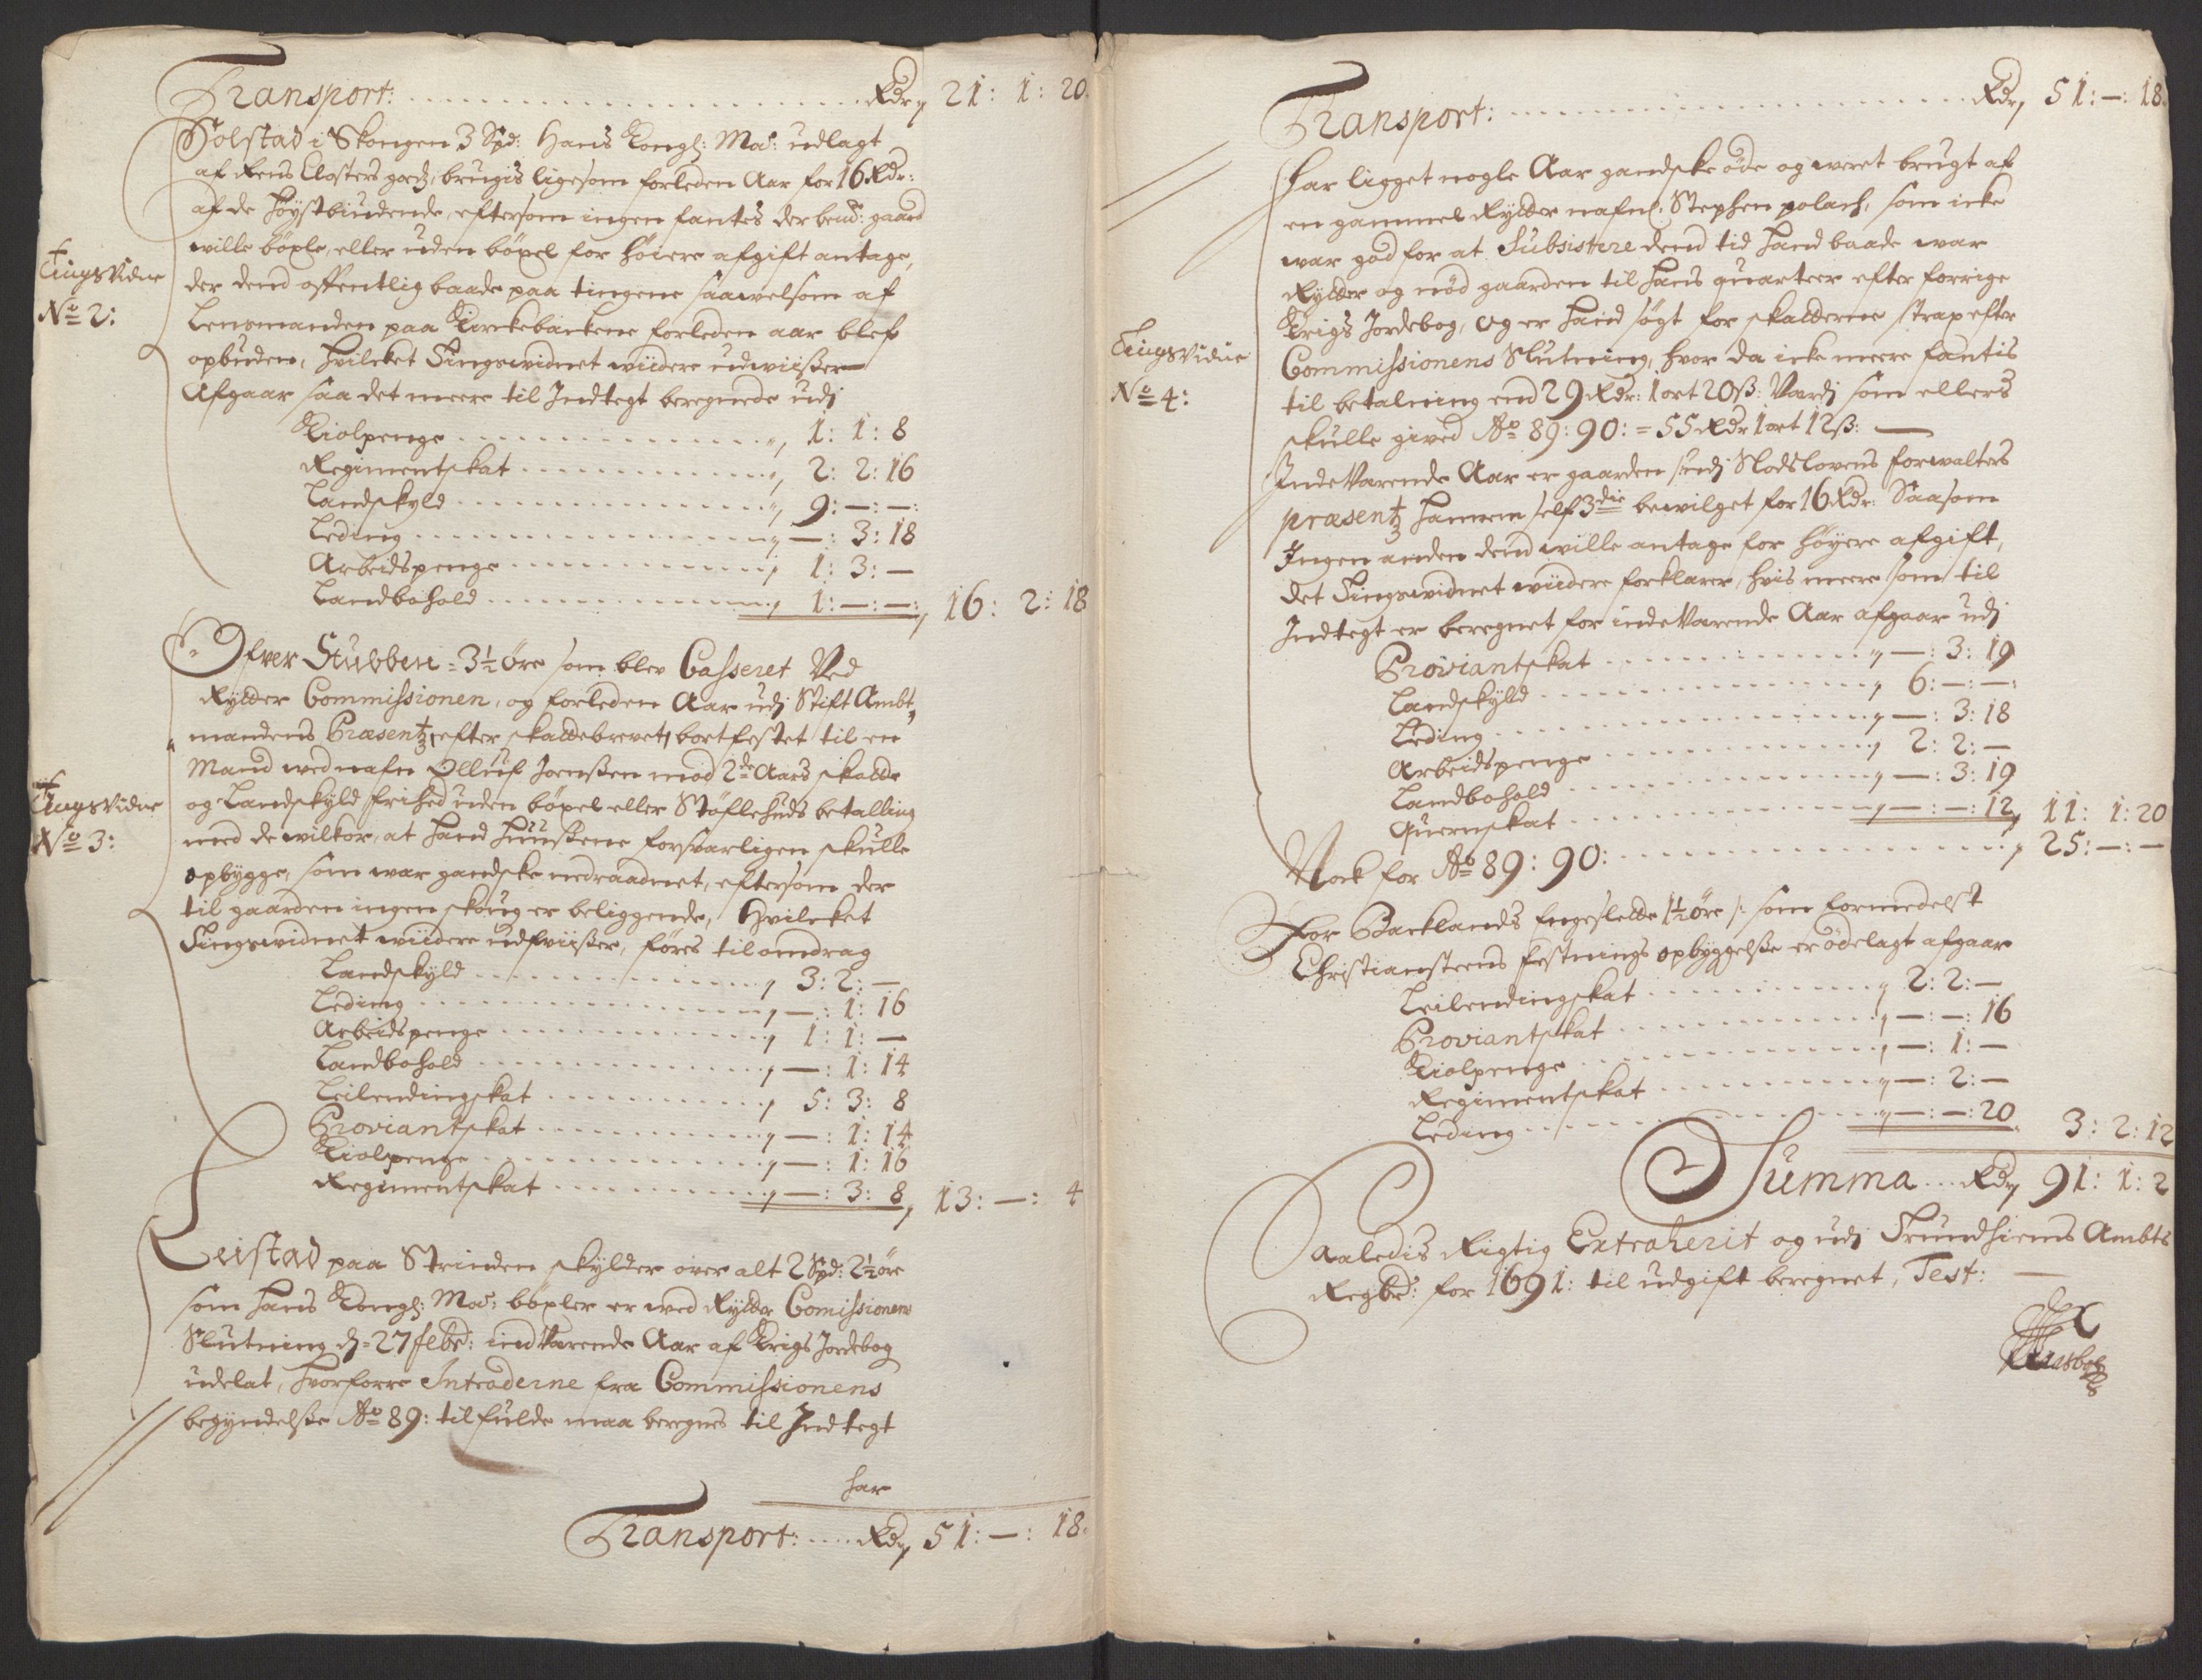 Transport: Rdr 21: 1: 20.
Solstad i Skongen 3 Spd: Hans Kongl: Maj: udlagt
af Rens Closters godz, brugis ligesom forleden Aar for 16 Rdr:
af de Høystbiudende, eftersom ingen fantes der bend: gaard
wille böxle, eller uden böxel for höiere afgift antage,
Tings Vidne
No 2:
der dend offentlig baade paa tingene saawelsom af
Lensmanden paa Kirkebackene forleden aar blef
opbuden, hvilcket Tingswidnet widere udwiißer
Afgaar saa det meere til Indtegt beregnede udj
Kiolpenge 1: 1: 8
Regimentskat 2: 2: 16
Landskyld 9: —: —:
Leding —: 3: 18
Arbeidspenge 1: 3: —
Landbohold 1: —: —: 16: 2: 18
Ofver Stubben = 3½ öre som blev Casseret Ved
Rytter Commissionen, og forleden Aar udj Stift Ambt,
mandens Præsentz, efter skattebrevet, bortfestet til en
Mand wed nafn Olluf Joenßen mod 2de Aars skatte
og Landskyld frihed uden böxel eller Støflehuds betalling
Tings Vidne
No 3:
med de wilkor, at hand Huußene forsvarligen skulle
opbygge, som war gandske nedraadnet, eftersom der
til gaarden ingen skoug er beliggende, Hvilcket
Tingswidnet widere udfviißer, føres til omdrag
Landskyld 3: 2: —
Leding —: 1: 16
Arbeidspenge 1: 1: —
Landbohold —: 1: 14
Leilendingskat 5: 3: 8
Proviantskat —: 1: 14
Kiolpenge —: 1: 16
Regimentskat —: 3: 8 13: —: 4
Leistad paa Strinden skylder over alt 2 Spd: 2½ öre
som Hans Kongl: Maj: böxler er wed Rytter Comissionens
Slutning d: 27 febr: indVærende Aar af Krigs Jordebog
udelat, hvorforre Intraderne fra Commissionens
begyndelße Ao 89: til fulde maa beregnes til Indtegt
har
Transport: Rdr 51: —: 18.
Transport: Rdr 51: —: 18.
har ligget nogle Aar gandske öde og weret brugt af
en gammel Rytter nafnl: Stephen polach, som icke
war god for at Subsistere dend tid hand baade war
Rytter og nød gaarden til hans quarteer efter forrige
Krigs Jordebog, og er hand søgt for skatterne strax efter
Tings Vidne
No 4:
Commissionens Slutning, hvor da icke meere fantis
til betalning end 29 Rdr: 1 ort 20 ß: Værdj som ellers
skulle gived Ao 89: 90: = 55 Rdr 1 ort 12 ß: —
IndeVærende Aar er gaarden udj Slodslovens forwalters
præsentz hannem self 3die bewilget for 16 Rdr: Saasom
Ingen anden dend wille antage for höyere afgift,
det Tingswidnet widere forklarer, hvis meere som til
Indtegt er beregnet for indeVærende Aar afgaar udj
Proviantskat —: 3: 19
Landskyld 6: —: —:
Leding —: 3: 18
Arbeidspenge 2: 2: —
Landbohold —: 3: 19
Quernskat —: —: 12, 11: 1: 20
Nock for Ao 89: 90: 25: —: —
For Backlands Engeslette 1½ öre /: som formedelst
Christiansteens festnings opbyggelße er ödelagt afgaar
Leilendingskat 2: 2: —
Proviantskat —: —: 16
Kiolpenge —: 1: —
Regimentskat —: 2: —
Leding —: —: 20 3: 2: 12
Summa Rdr 91: 1: 2
Saaledis Rigtig Extraherit og udj Trundhiems Ambts
Regbr: for 1691: til udgift beregnet, Test: —